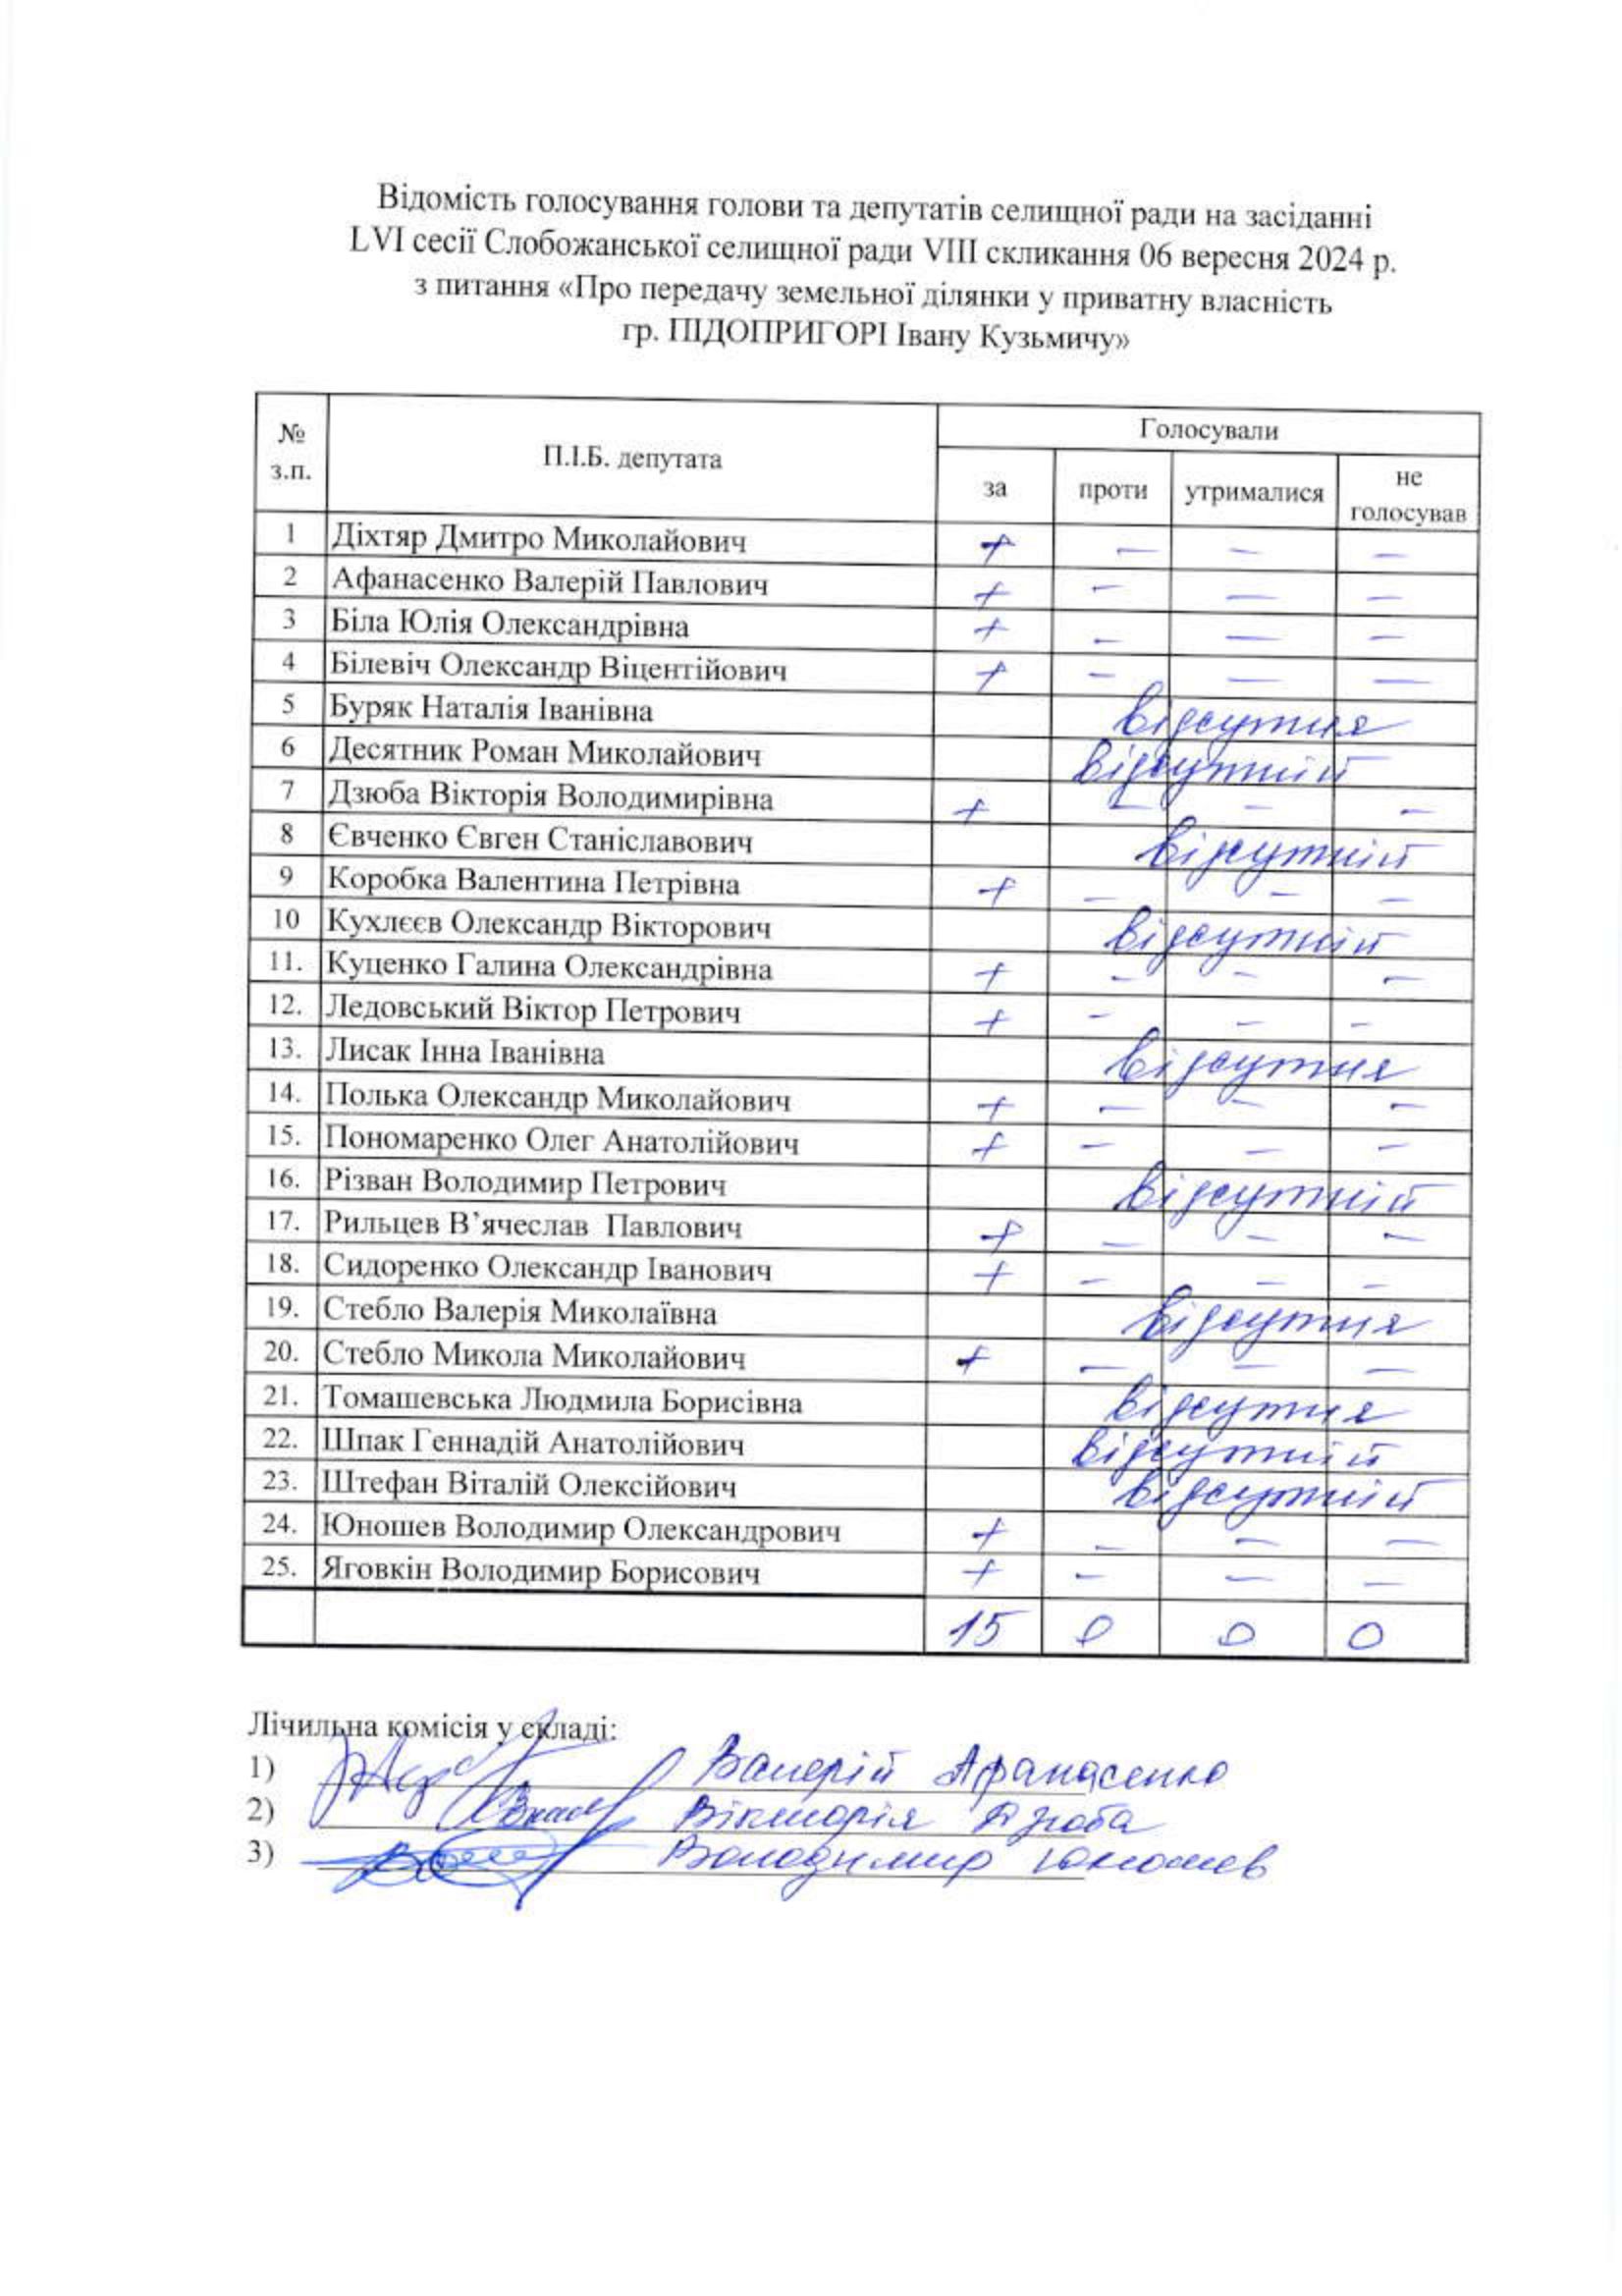 Відомість голосування голови та депутатів селищної ради на засіданні
LVI сесії Слобожанської селищної ради VIII скликання 06 вересня 2024 р.
з питання «Про передачу земельної ділянки у приватну власність
гр. ПІДОПРИГОРІ Івану Кузьмичу»
№ з.п. П.І.Б. депутата Голосували
за проти утрималися не голосував
1 Діхтяр Дмитро Миколайович + – – –
2 Афанасенко Валерій Павлович + – – –
3 Біла Юлія Олександрівна + – – –
4 Білевіч Олександр Віцентійович + – – –
5 Буряк Наталія Іванівна відсутня
6 Десятник Роман Миколайович відсутній
7 Дзюба Вікторія Володимирівна + – – –
8 Євченко Євген Станіславович відсутній
9 Коробка Валентина Петрівна + – – –
10 Кухлєєв Олександр Вікторович відсутній
11. Куценко Галина Олександрівна + – – –
12. Ледовський Віктор Петрович + – – –
13. Лисак Інна Іванівна відсутня
14. Полька Олександр Миколайович + – – –
15. Пономаренко Олег Анатолійович + – – –
16. Різван Володимир Петрович відсутній
17. Рильцев В’ячеслав Павлович + – – –
18. Сидоренко Олександр Іванович + – – –
19. Стебло Валерія Миколаївна відсутня
20. Стебло Микола Миколайович + – – –
21. Томашевська Людмила Борисівна відсутня
22. Шпак Геннадій Анатолійович відсутній
23. Штефан Віталій Олексійович відсутній
24. Юношев Володимир Олександрович + – – –
25. Яговкін Володимир Борисович + – – –
15 0 0 0
Лічильна комісія у складі:
1) Валерій Афанасенко
2) Вікторія Дзюба
3) Володимир Юношев